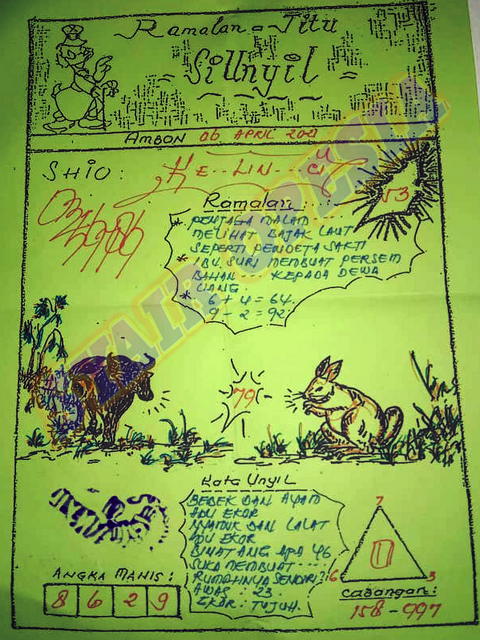 Ramalan = Jitu
= Si Unyil =
AMBON 06 APRIL 2021
SHIO:
KE-LIN-CI
53
Ramalan :
* PENJAGA MALAM
MELIHAT BAJAK LAUT
SEPERTI PENDETA SAKTI
* IBU SURI MEMBUAT PERSEM
BAHAN --- KEPADA DEWA
UANG.
* 6 + 4 = 64.
9 - 2 = 92.
79
Kata Unyil
BEBEK DAN AYAM
ADU EKOR
NYAMUK DAN LALAT
ADU EKOR
BINATANG APA YG
SUKA MEMBUAT ---
RUMAHNYA SENDIRI?
AWAS : 23.
EKOR : TUJUH.
7
0
6
3
ANGKA MANIS :
8 6 2 9
CADANGAN:
158-997